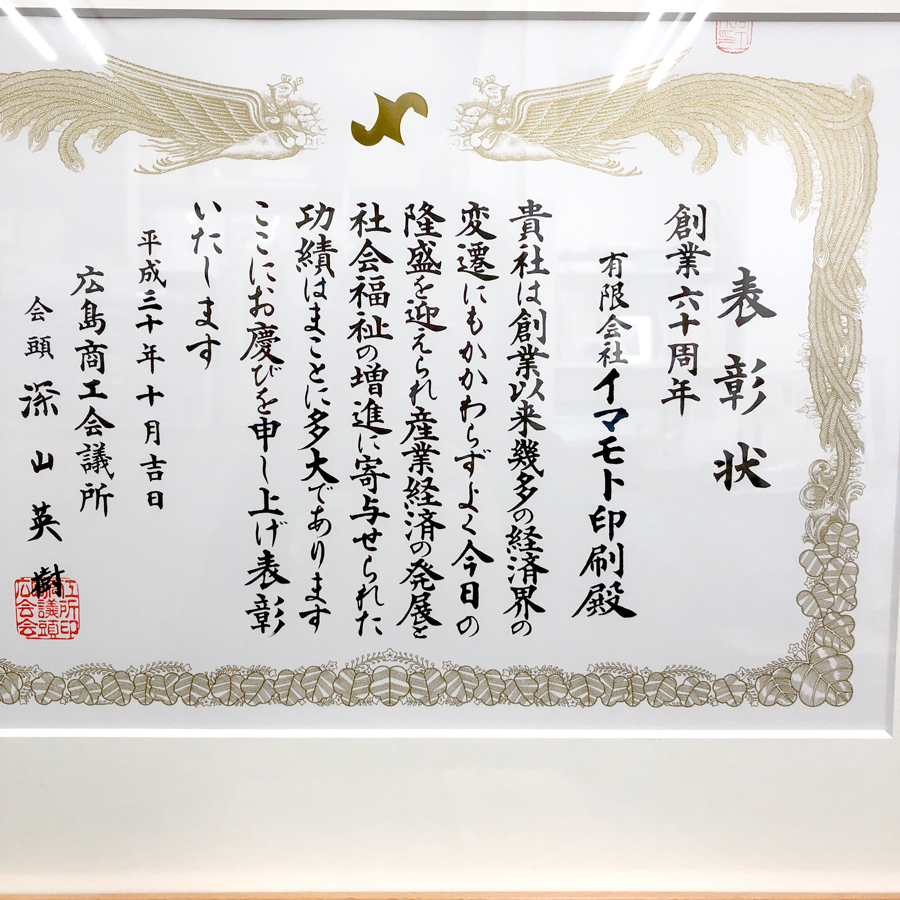 表彰状
創業六十周年
有限会社イマモト印刷殿
貴社は創業以来幾多の経済界の
変遷にもかかわらずよく今日の
隆盛を迎えられ産業経済の発展と
社会福祉の増進に寄与せられた
功績はまことに多大であります
ここにお慶びを申し上げ表彰
いたします
平成三十年十月吉日
広島商工会議所
会頭 深山英樹